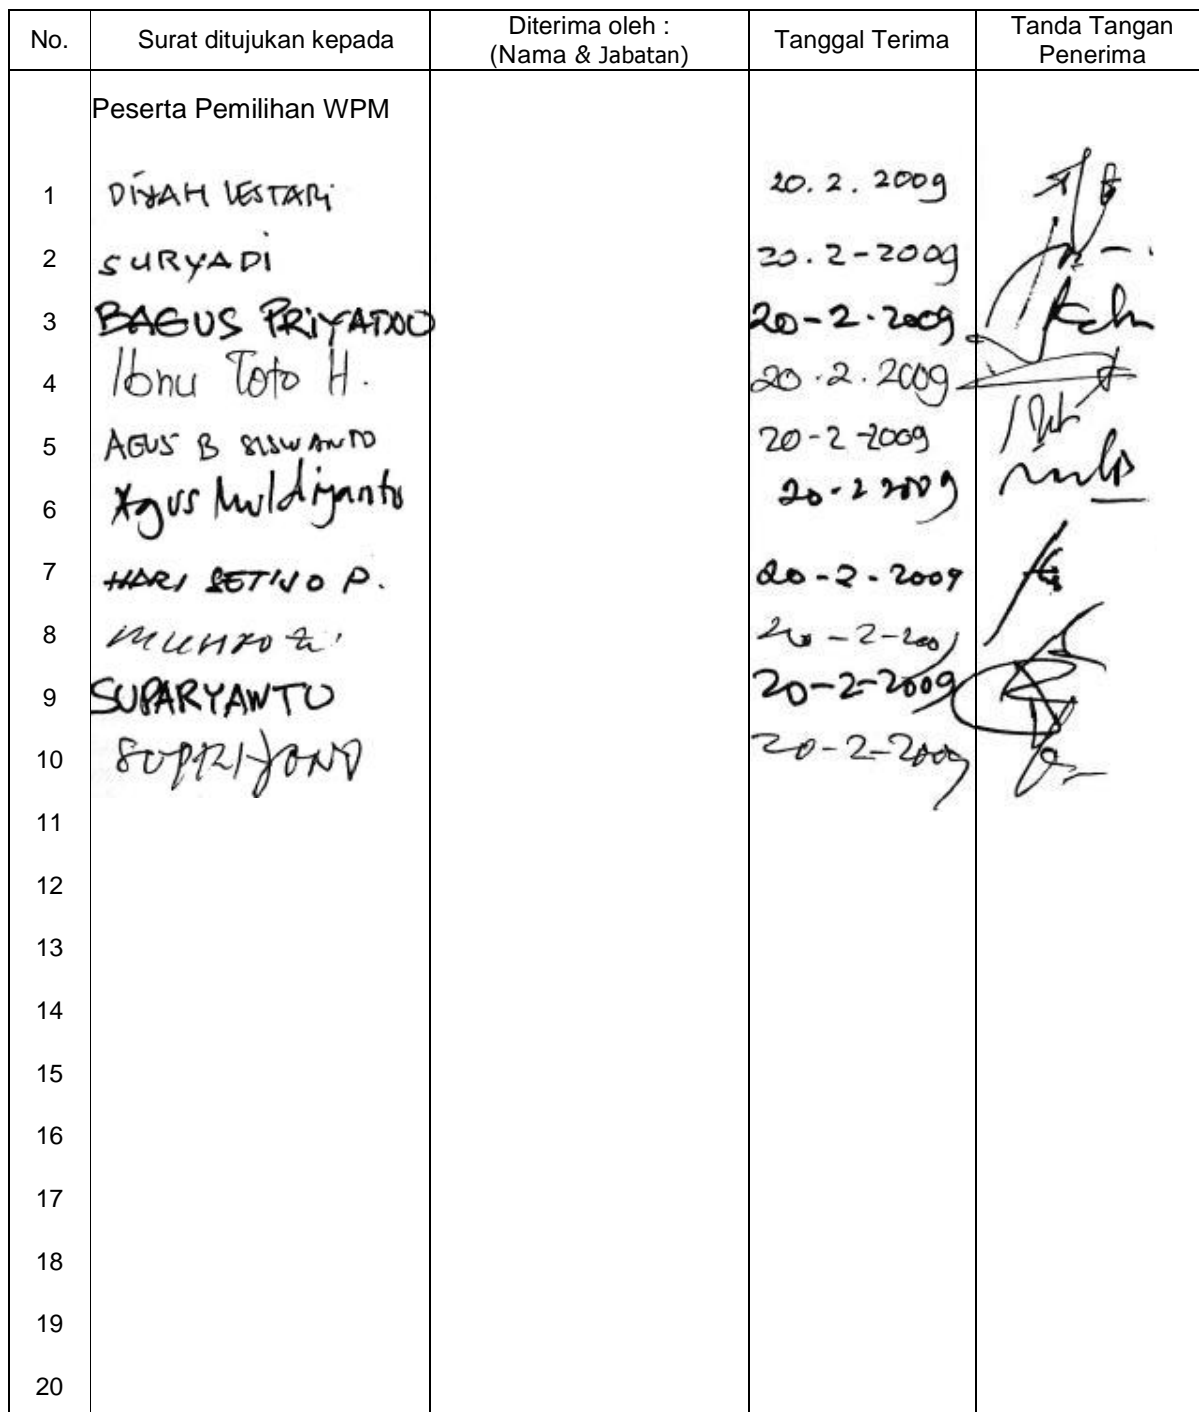 No. Surat ditujukan kepada Diterima oleh : (Nama & Jabatan) Tanggal Terima Tanda Tangan Penerima
Peserta Pemilihan WPM
1 DIYAH LESTARI 20.2.2009
2 SURYADI 20.2-2009
3 BAGUS PRIYATNO 20-2-2009
4 Ibnu Toto H. 20.2.2009
5 AGUS B SISWANTO 20-2-2009
6 Agus Muldiyanto 20-2 2009
7 HARI SETIYO P. 20-2-2009
8 20-2-2009
9 SUPARYANTO 20-2-2009
10 SUPRIYONO 20-2-2009
11
12
13
14
15
16
17
18
19
20